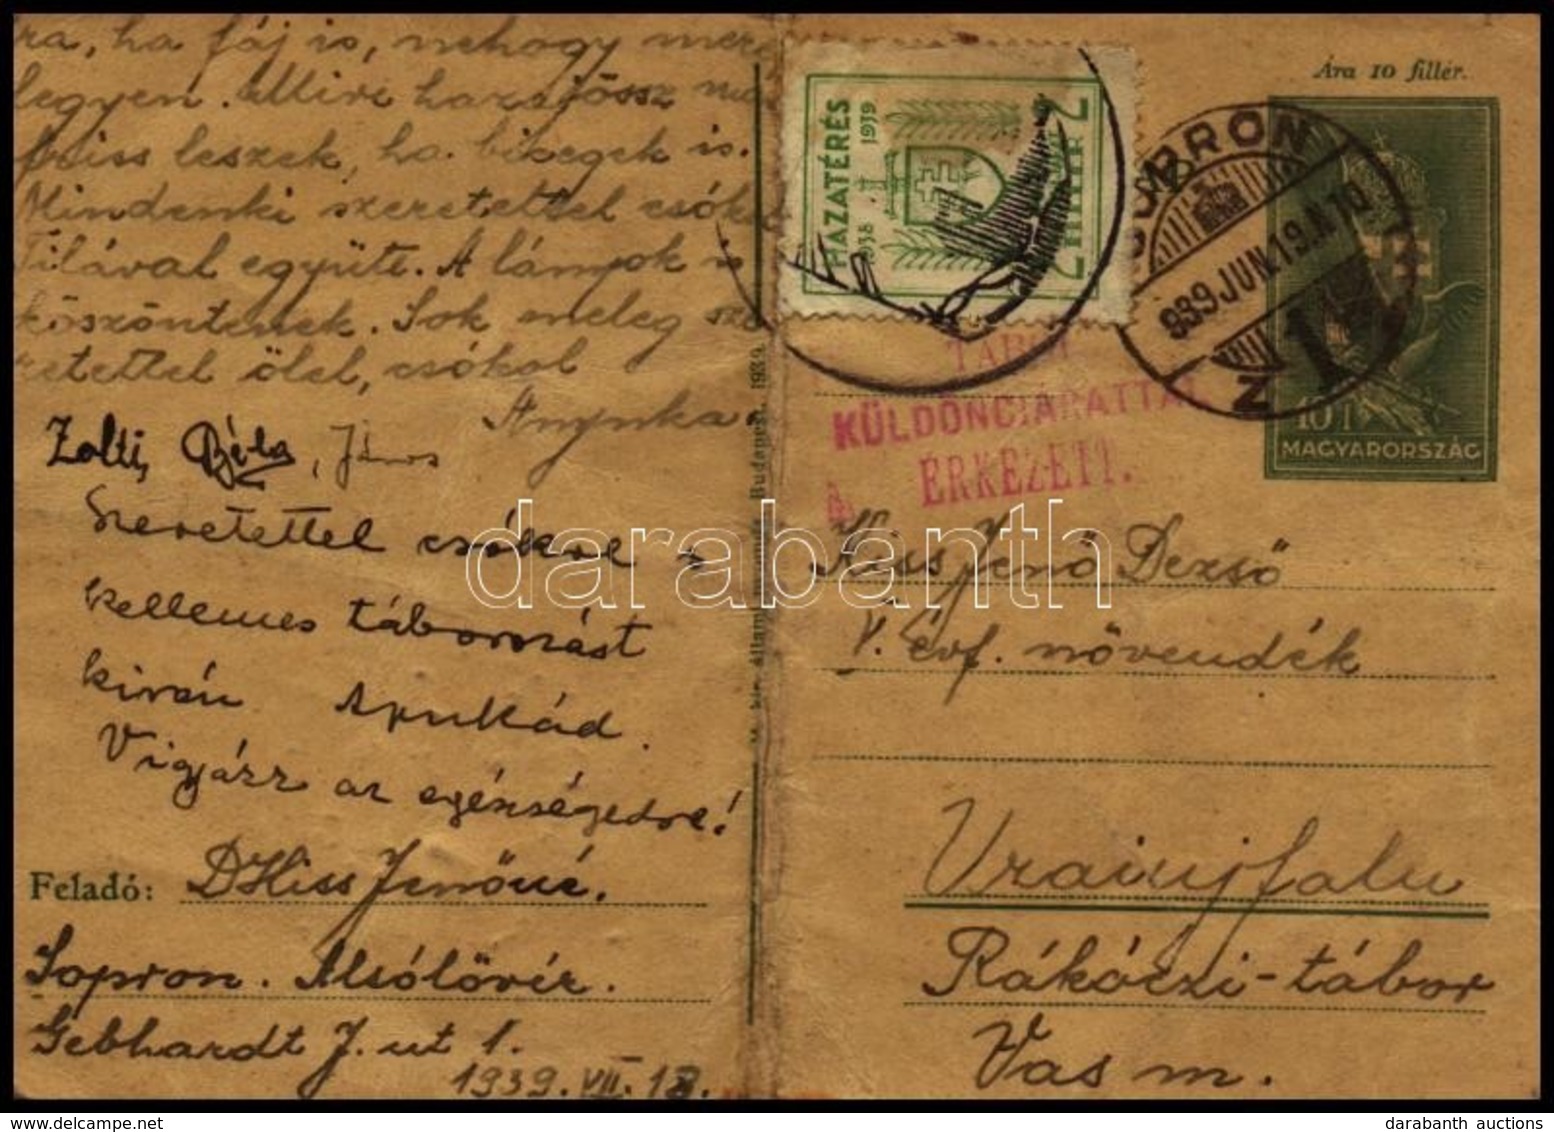 ra, ha fáj is, nehogy
legyen. Mire hazajössz
friss leszek, ha bicegek is.
Mindenki szeretettel csókol
Tilával együtt. A lányok is
köszöntenek. Sok meleg sze
retettel ölel, csókol
Anyuka
Zolti, Béla, János
Szeretettel csókol s
kellemes táborozást
kiván Apukád.
Vigyázz az egészségedre!
Feladó: DKiss Jenőné.
Sopron. Alsólövér.
Gebhardt J. ut 1.
1939. VII. 18.
Ára 10 fillér.
HAZATÉRÉS
1938 1939
2
2
SOPRON
939 JUN.19.
10 f
MAGYARORSZÁG
TÁBOR
KÜLDÖNCJÁRATTAL
ÉRKEZETT.
Kiss Jenő Dezső
V. évf. növendék
Uraiujfalu
Rákóczi-tábor
Vas m.
darabanth
darabanth auctions